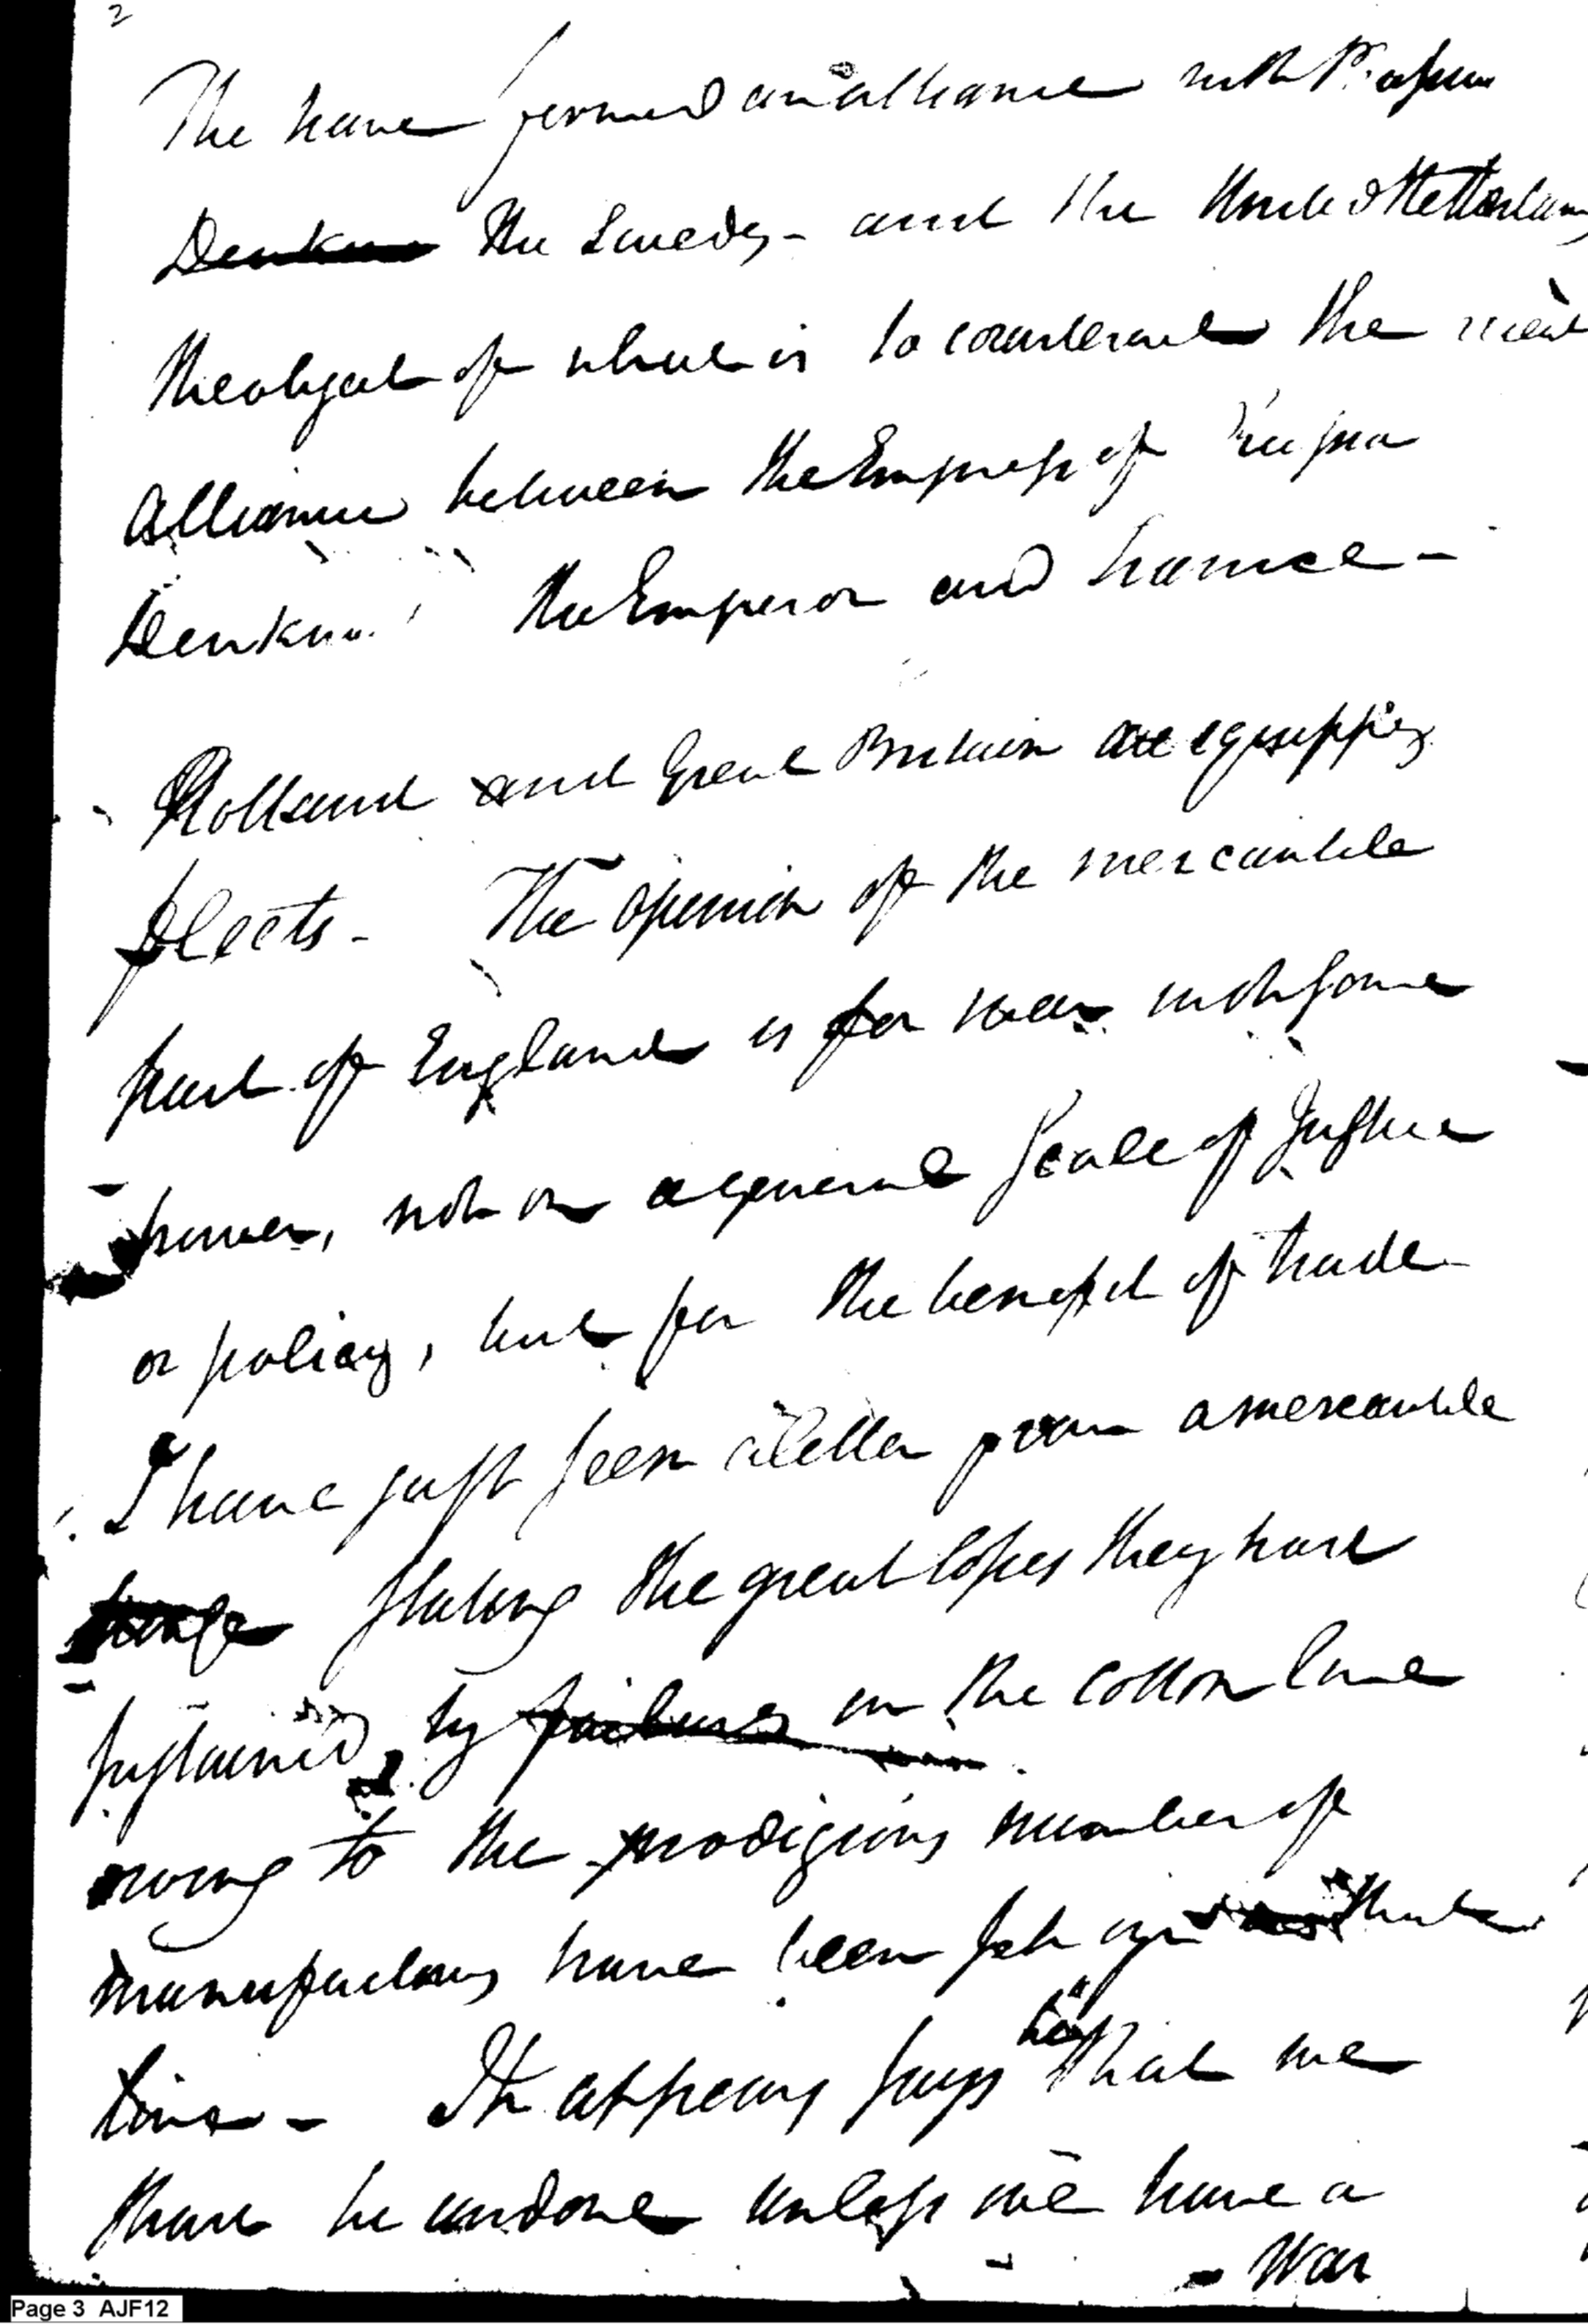 2
The have formed an alliance with Prussia
Denkm the Swedes - and the United Netherlands
the object of which is to counteract the
Alliance between the Empress of Russia
Denkm the Emperor and France -
Holland and Great Britain are equipping
fleets - The opinion of the mercantile
part of England is for war with some
power, not on a general scale of Justice
or policy, but for the benefit of trade
I have just seen a letter from a mercantile
house stating the great losses they have
sustained by failures in the cotton line
owing to the prodigious number of
manufactorys have been set up that
line - It appears says he that we
shall be undone unless we have a
- War
Page 3 AJF12